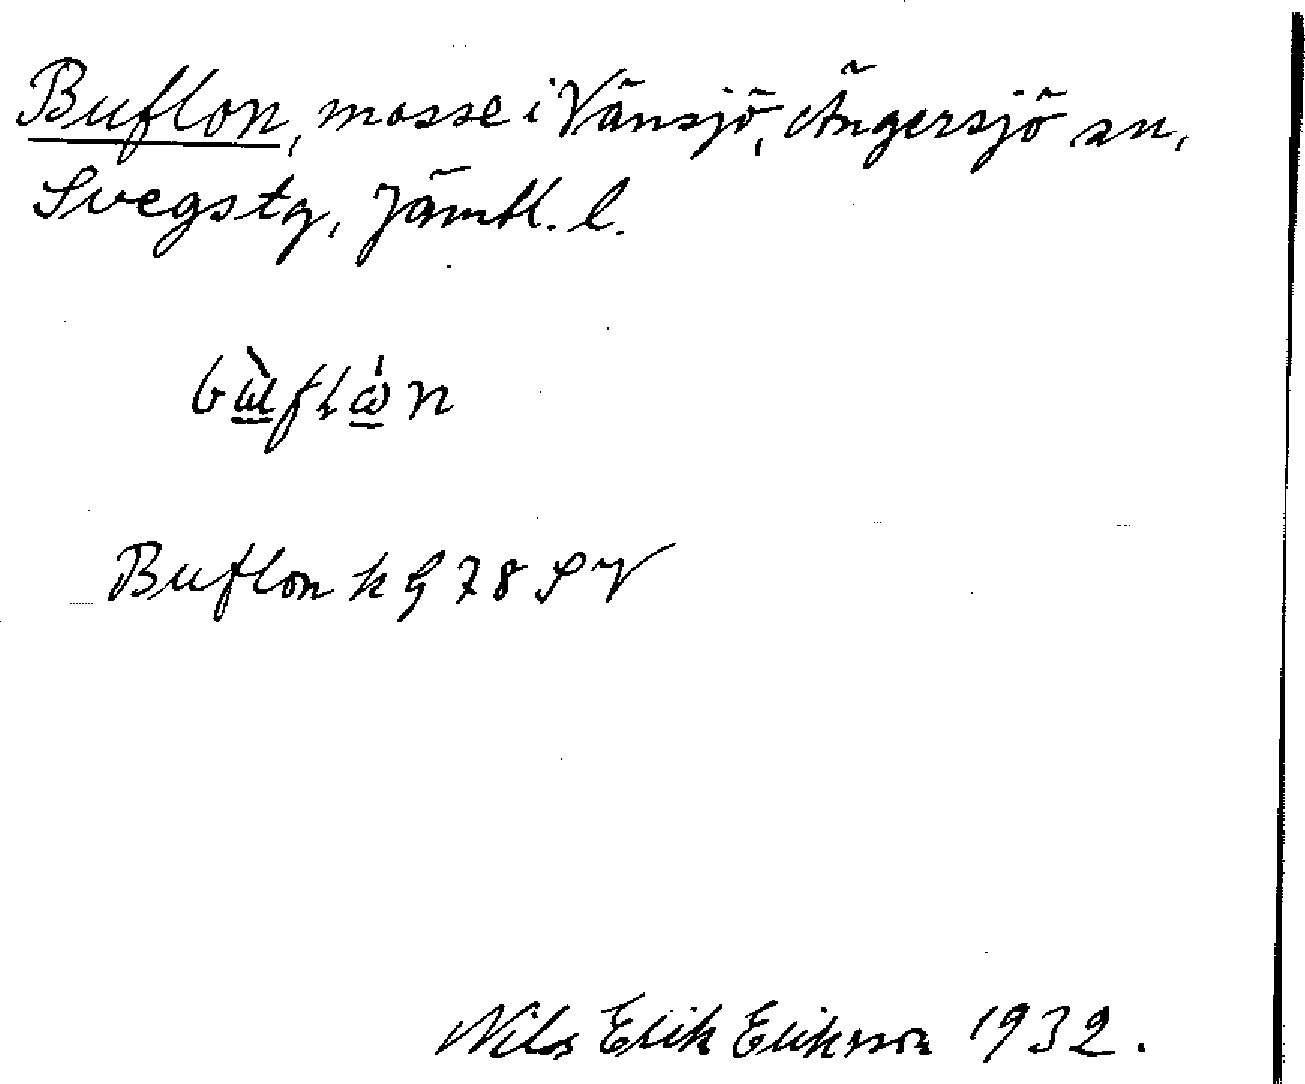 Buflon, mosse i Vänsjö, Ängersjö sn,
Svegs tg, Jämtl. l.
Buflon k G 78 SV
Nils Erik Eriksson 1932.